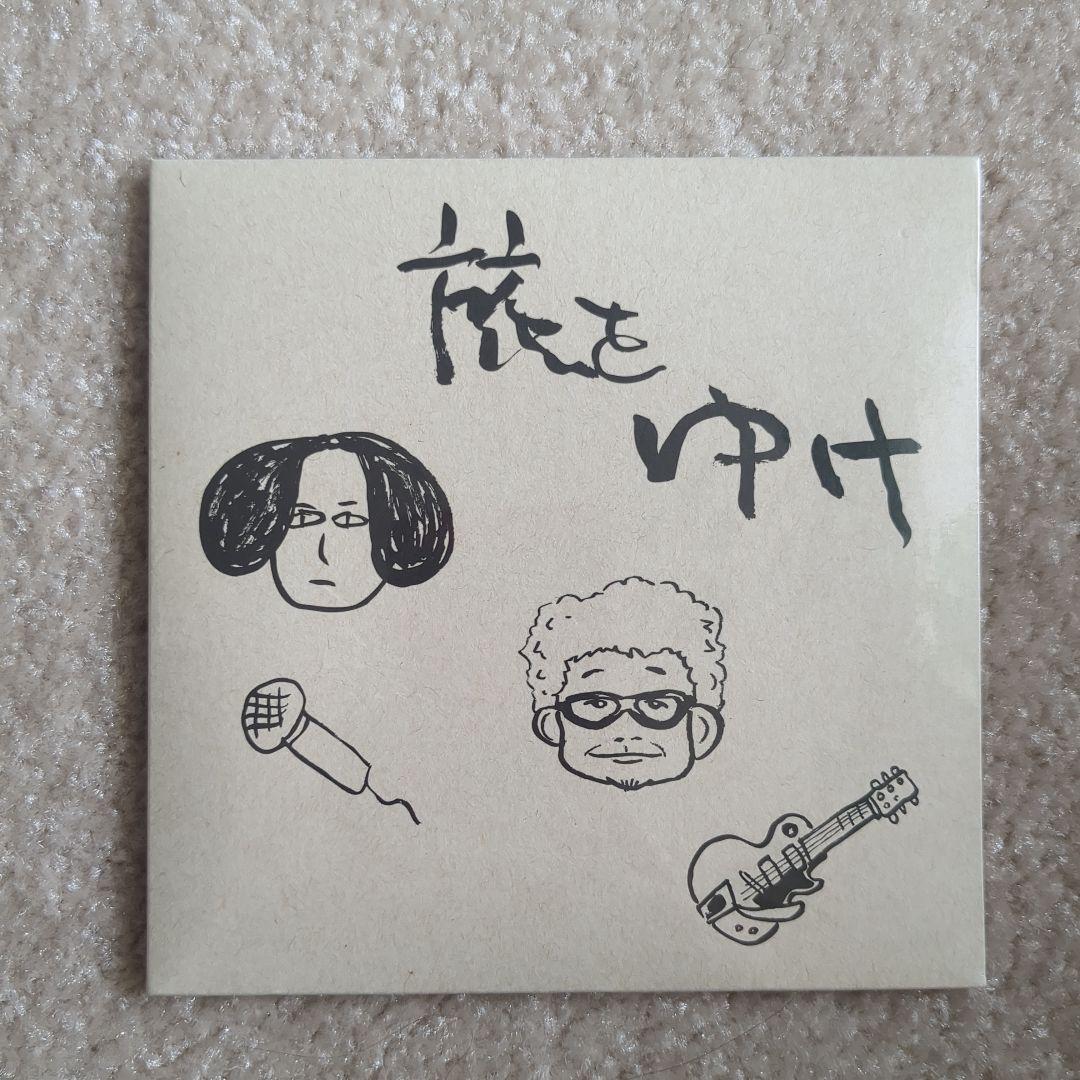 旅を
ゆけ